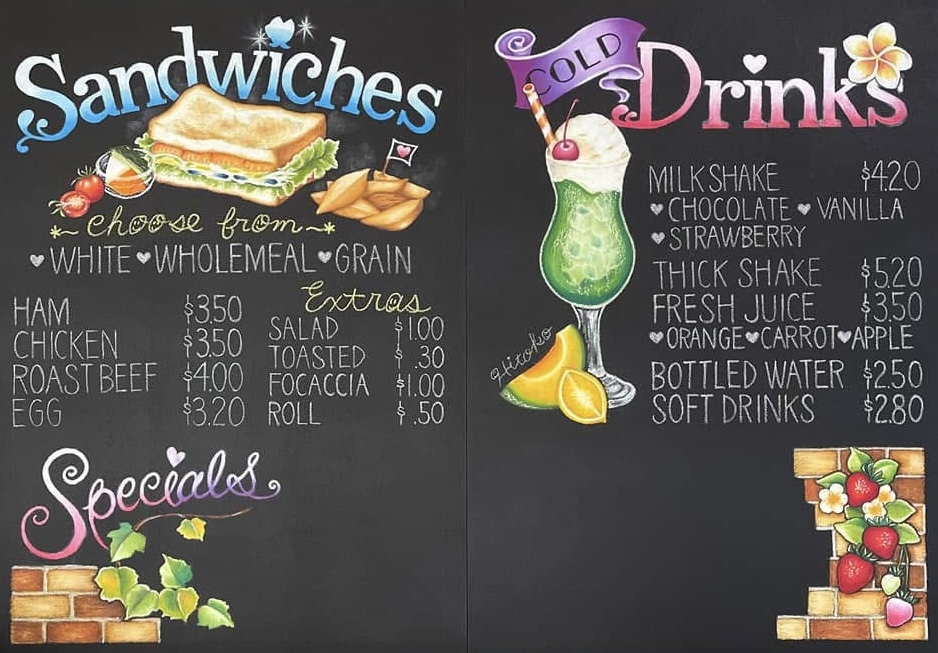 Sandwiches
choose from
WHITE WHOLEMEAL GRAIN
HAM $3.50
CHICKEN $3.50
ROAST BEEF $4.00
EGG $3.20
Extras
SALAD $1.00
TOASTED $.30
FOCACCIA $1.00
ROLL $.50
Specials
COLD
Drinks
MILKSHAKE $4.20
CHOCOLATE VANILLA
STRAWBERRY
THICK SHAKE $5.20
FRESH JUICE $3.50
ORANGE CARROT APPLE
BOTTLED WATER $2.50
SOFT DRINKS $2.80
Hitoko